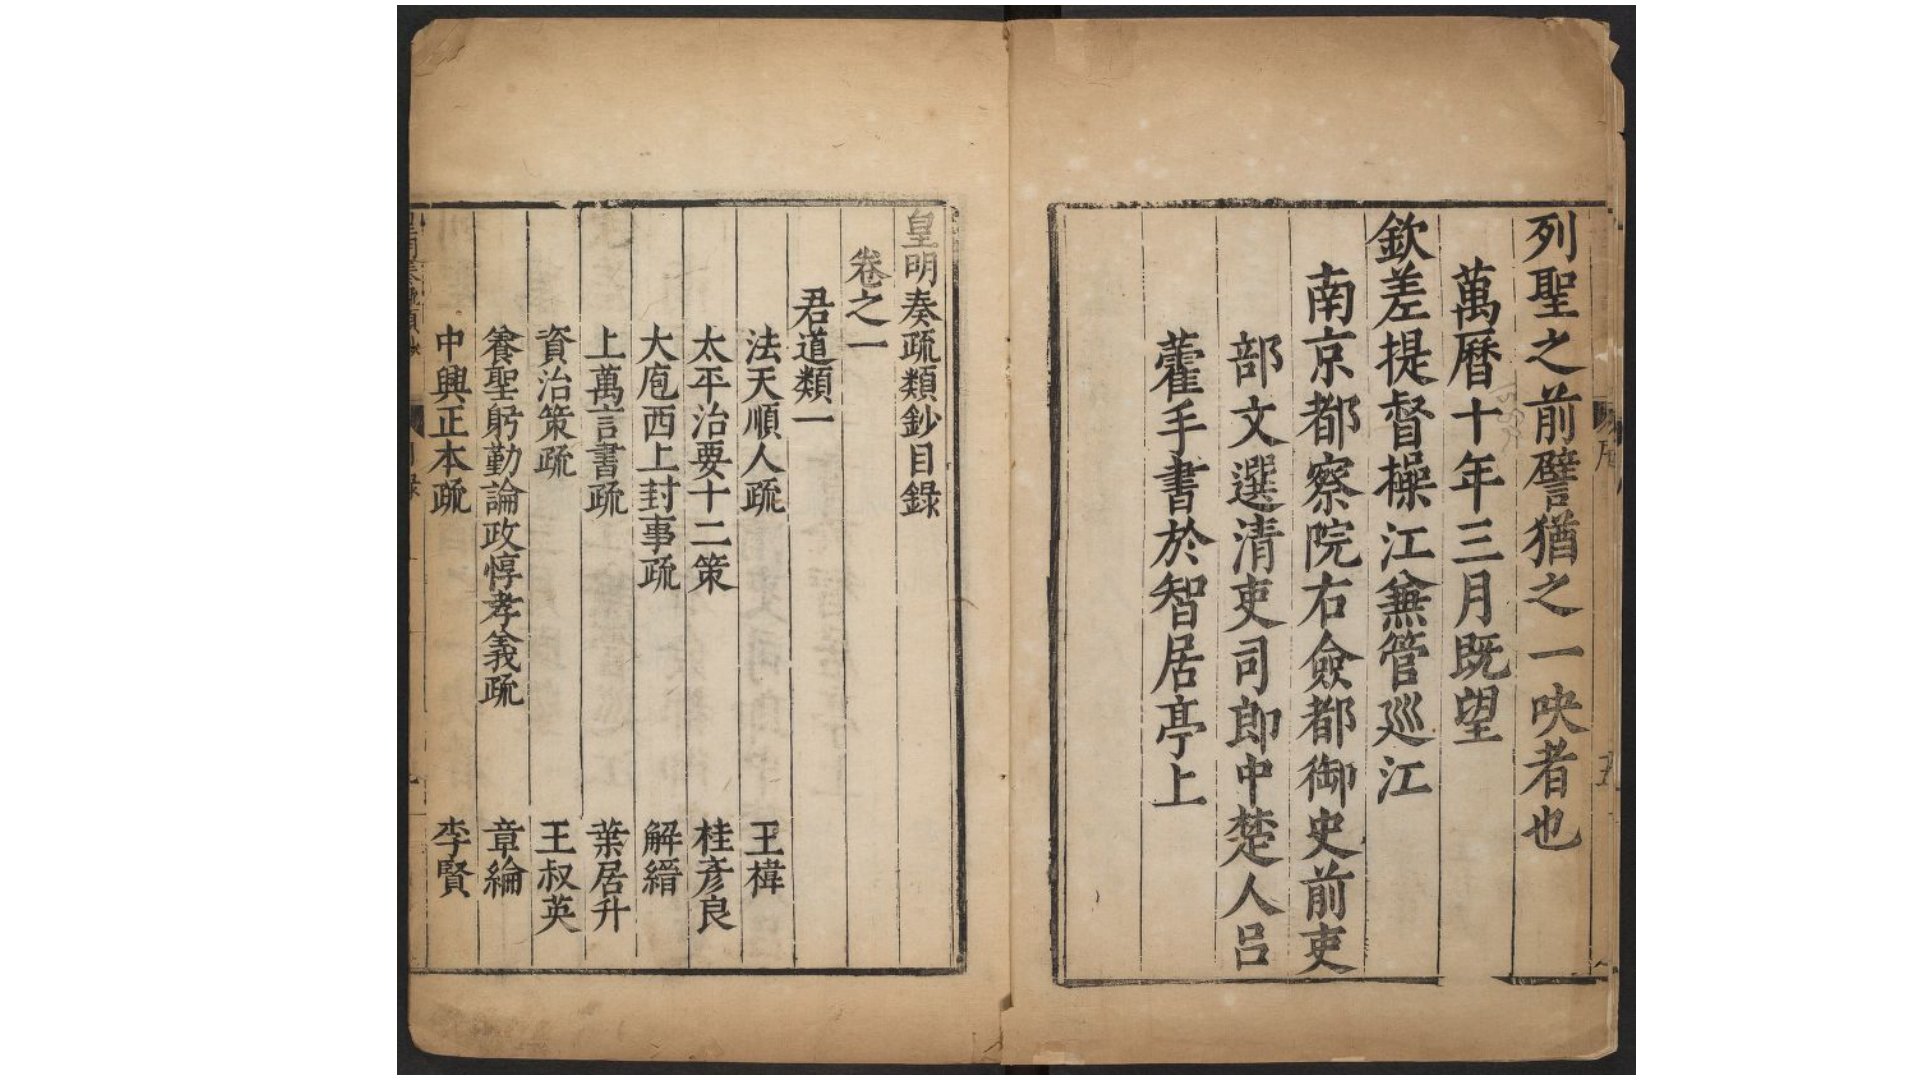 列聖之前譬猶之一吷者也
萬曆十年三月既望
欽差提督操江兼管巡江
南京都察院右僉都御史前吏
部文選清吏司郎中楚人呂
藿手書於智居亭上
皇明奏疏類鈔目錄
卷之一
君道類一
法天順人疏 王禕
太平治要十二策 桂彥良
大庖西上封事疏 解縉
上萬言書疏 葉居升
資治策疏 王叔英
養聖躬勤論政惇孝義疏 章綸
中興正本疏 李賢